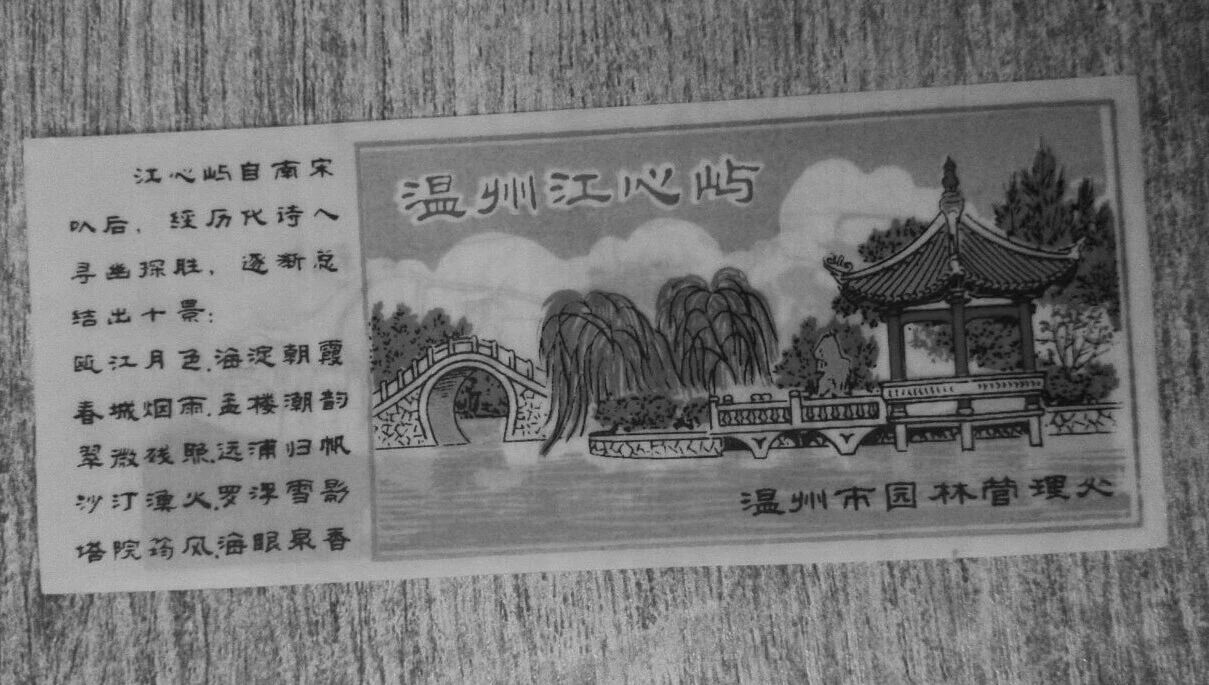 江心屿自南宋
以后，经历代诗人
寻幽探胜，逐渐总
结出十景：
瓯江月色、海淀朝霞
春城烟雨、孟楼潮韵
翠微残照、远浦归帆
沙汀渔火、罗浮雪影
塔院筠风、海眼泉香
温州江心屿
温州市园林管理处